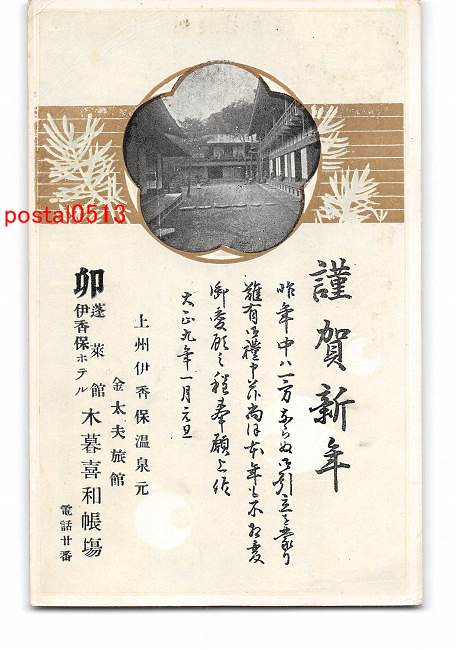 謹賀新年
昨年中ハ一方ならぬ御引立を蒙り
難有御禮申上尚ほ本年も不相変
御愛顧之程奉願上候
大正九年一月元旦
上州伊香保温泉元
金太夫旅館
卯 蓬萊館 木暮喜和帳場
伊香保ホテル
電話廿番
postal0513